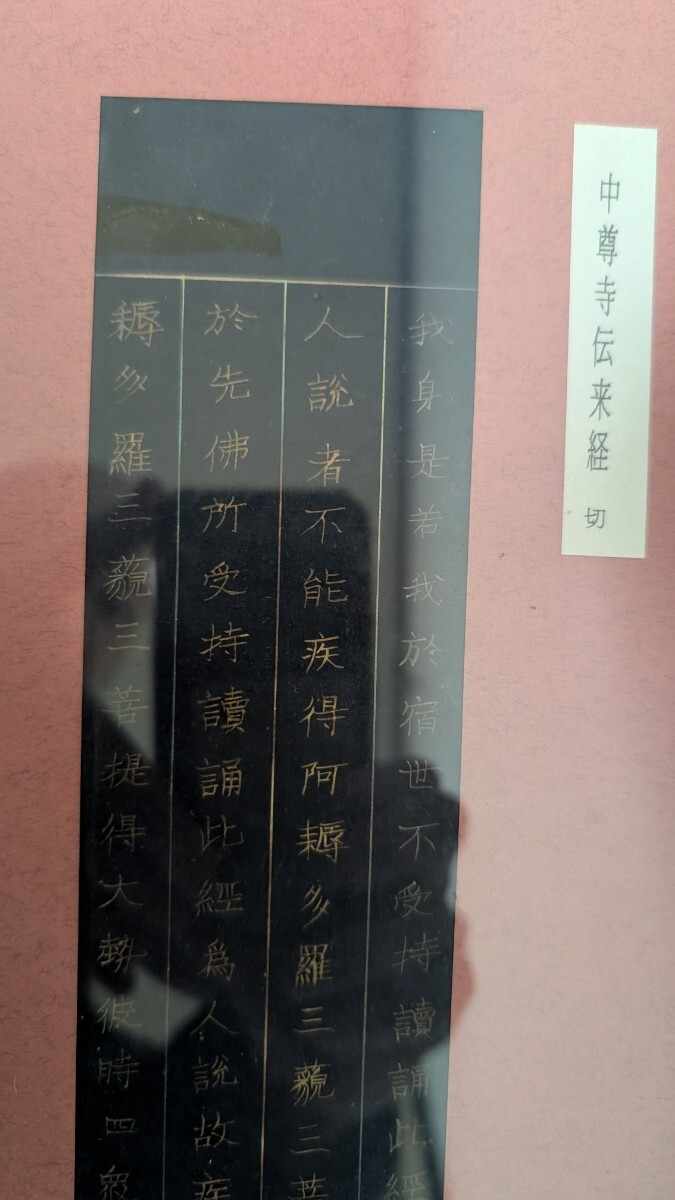 中尊寺伝来経 切
我身是若我於宿世不受持讀誦此經
人說者不能疾得阿耨多羅三藐三菩
於先佛所受持讀誦此經爲人說故疾
耨多羅三藐三菩提得大勢彼時四衆